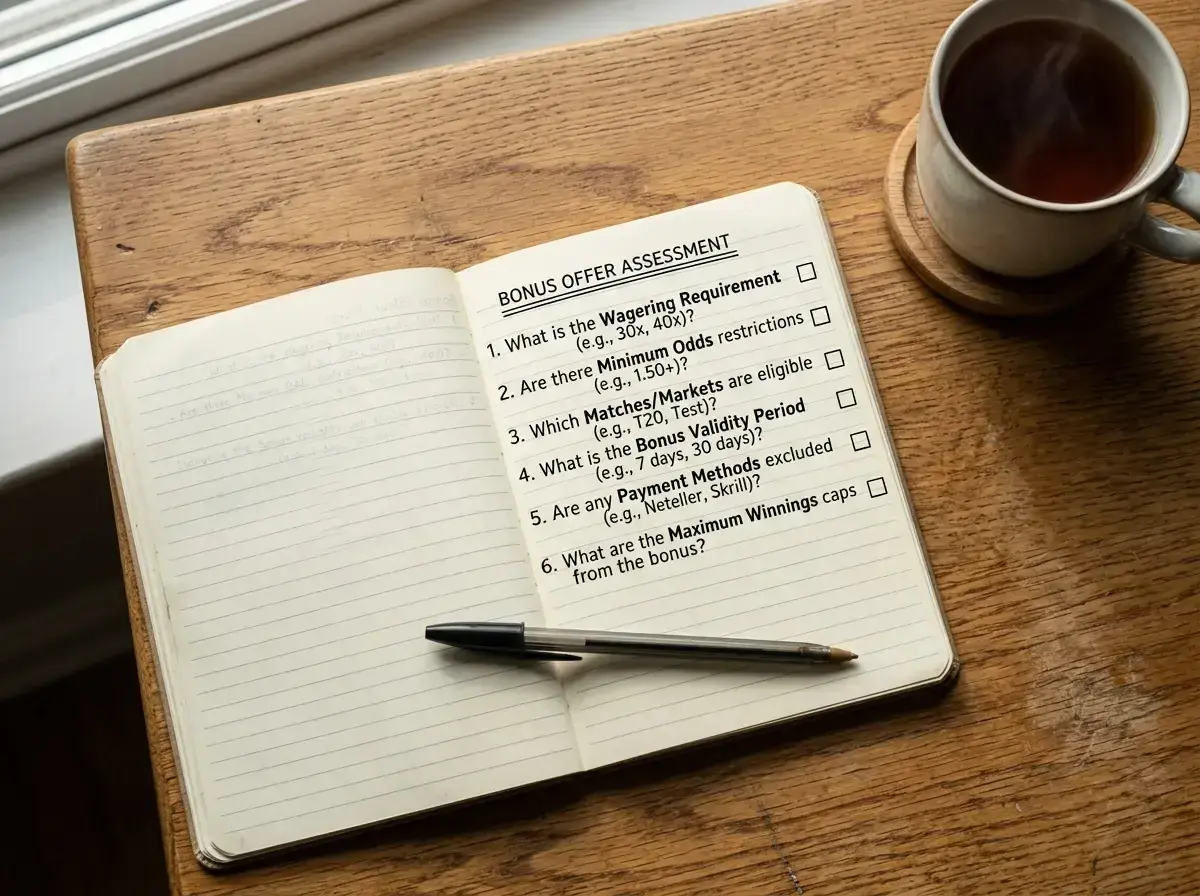 BONUS OFFER ASSESSMENT
1. What is the Wagering Requirement
(e.g., 30x, 40x)?
2. Are there Minimum Odds restrictions
(e.g., 1.50+)?
3. Which Matches/Markets are eligible
(e.g., T20, Test)?
4. What is the Bonus Validity Period
(e.g., 7 days, 30 days)?
5. Are any Payment Methods excluded
(e.g., Neteller, Skrill)?
6. What are the Maximum Winnings caps
from the bonus?